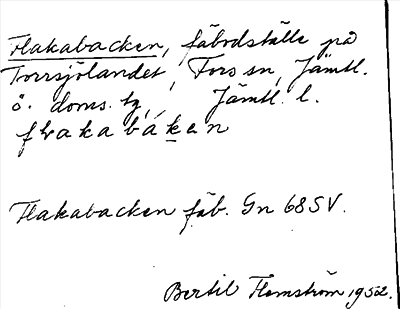 Flakabacken, fäbodställe på
Torrsjölandet, Fors sn, Jämtl.
ö. doms. tg, Jämtl. l.
flakabáken
Flakabacken fäb. Gn 68 SV.
Bertil Flemström 1952.